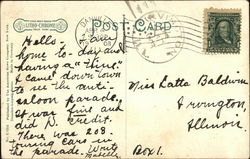 LITHO-CHROME
POST CARD
Hello
home to-day and
having a "time"
I came down town
to see the anti-
saloon parade.
It was fine and
did D. credit.
There was 208
touring cars in
the parade. Write
Miss Latta Baldwin
Irvington,
Illinois
Box 1.